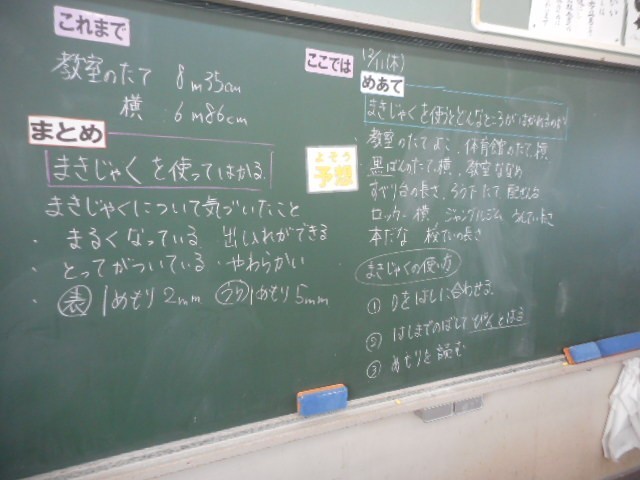 これまで
教室のたて 8m35cm
横 6m86cm
まとめ
まきじゃくを使ってはかる
まきじゃくについて気づいたこと
・まるくなっている 出し入れができる
・とってがついている・やわらかい
・表 1めもり2mm ウラ 1めもり5mm
ここでは
12/11(木)
めあて
まきじゃくを使うとどんなところがはかれるのか
よそう
予想
・教室のたてよこ、体育館のたて、横
・黒ばんのたて、横、教室ななめ
すべり台の長さ、ろう下たて
ロッカー横、ジャングルジム、
本だな 校ていの長さ
まきじゃくの使い方
① 0をはしに合わせる
② はしまでのばして ぴんとはる
③ めもりを読む